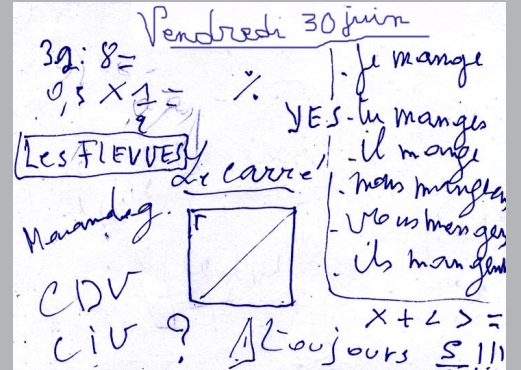 Vendredi 30 juin
32 : 8 =
0,5 × 1/2 =
%
Les FLEUVES
Le carré
CDV
CIV ?
je mange
YES - tu manges
- il mange
- nous mangeons
- vous mangez
ils mangent
× + < > =
toujours S !!!